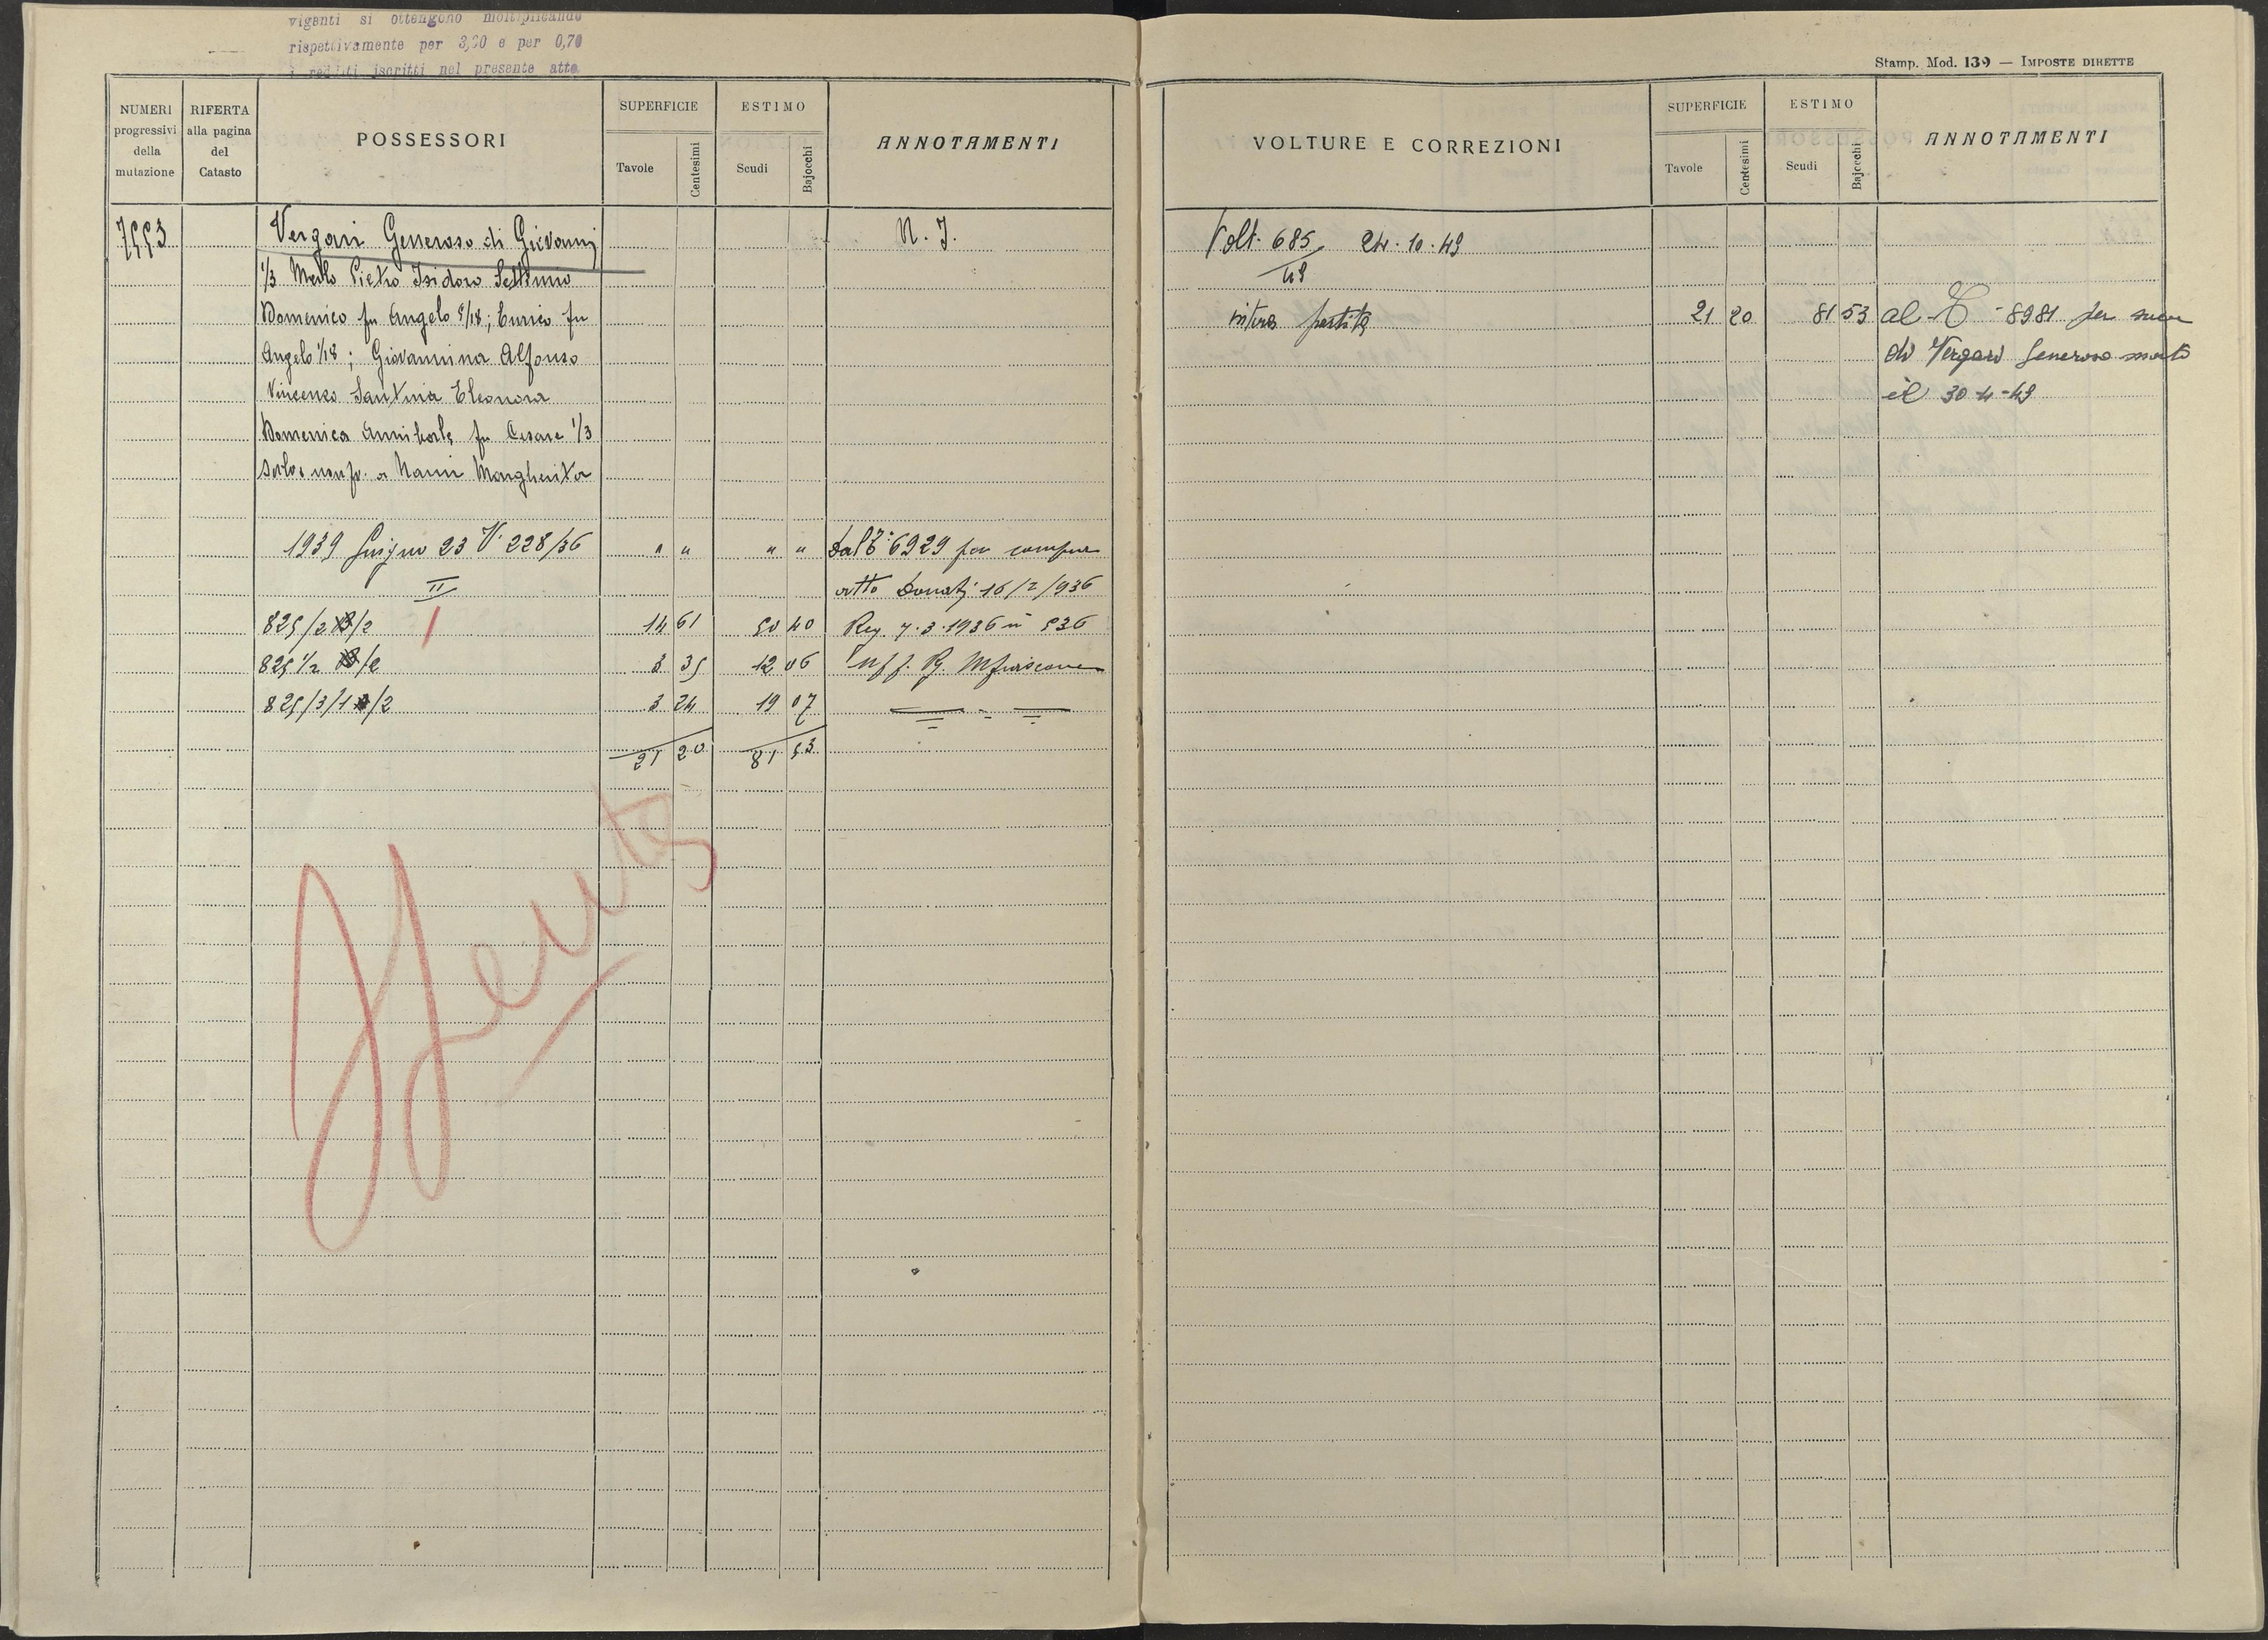 viganti si ottengono moltiplicando
rispettivamente per 3,00 e per 0,70
i redditi iscritti nel presente atto
NUMERI progressivi della mutazione
RIFERTA alla pagina del Catasto
POSSESSORI
SUPERFICIE
Tavole
Centesimi
ESTIMO
Scudi
Bajocchi
ANNOTAMENTI
7553 Vergari Generoso di Giovanni N. I.
1/3 Merlo Pietro Isidoro Settimio
Domenico fu Angelo 5/18; Enrico fu
Angelo 1/18; Giovannina Alfonso
Vincenzo Santina Eleonora
Domenica Annibale fu Cesare 1/3
salvo usufr. a Nanni Margherita
1939 Giugno 23 V. 228/36 " " " " Dal T. 6929 per compra
II atto Donati 16/2/936
825/2 /2 14 61 50 40 Reg. 7.3.1936 n 536
825 1/2 /2 3 35 12 06 Uff. Rg.
825/3/1 /2 3 24 19 07
21 20 81 53
Stamp. Mod. 139 — IMPOSTE DIRETTE
VOLTURE E CORREZIONI
SUPERFICIE
Tavole
Centesimi
ESTIMO
Scudi
Bajocchi
ANNOTAMENTI
Volt. 685/49 24.10.49
intera partita 21 20 81 53 al T - 8981 per succ
di Vergari Generoso morto
il 30-4-49